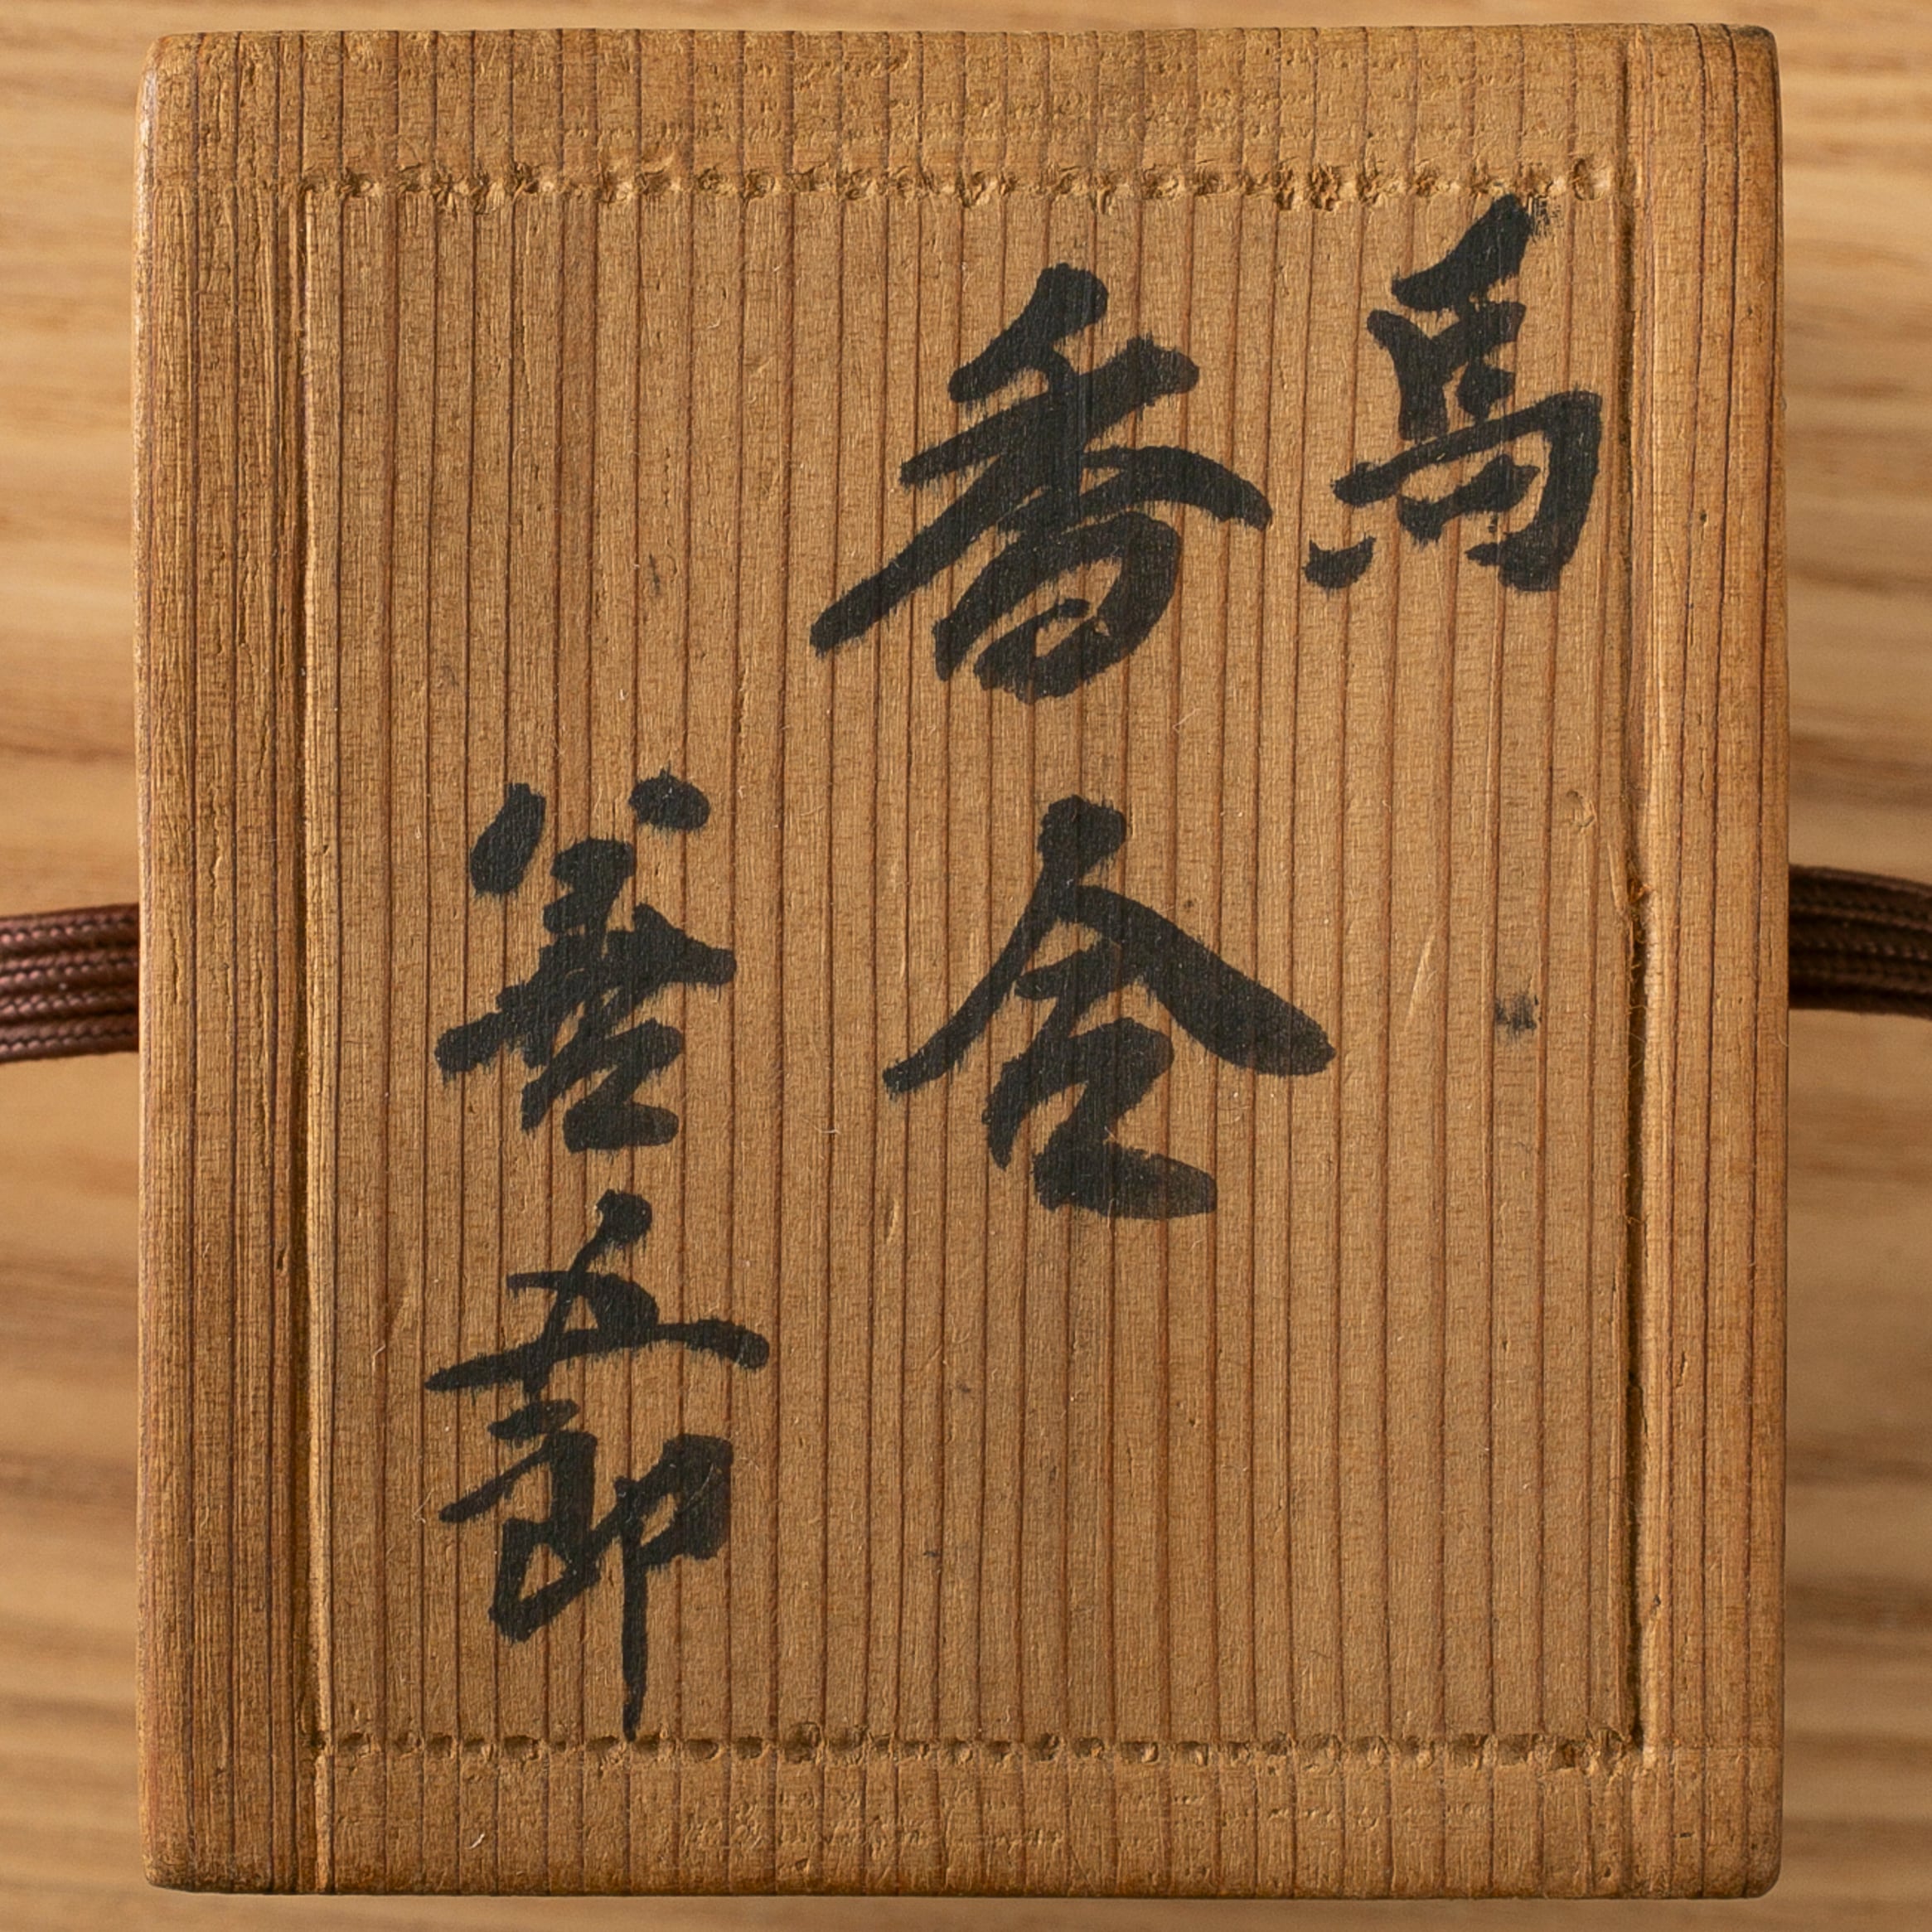 馬
香合
善五郎